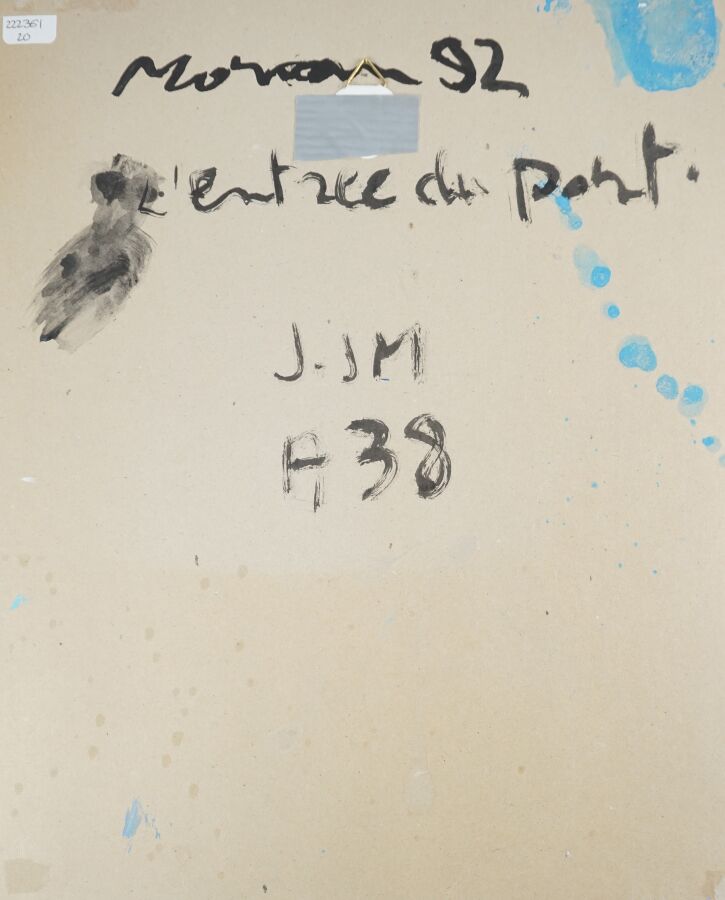 222361
20
Morvan 92
L'entrée du port.
J.JM
A 38